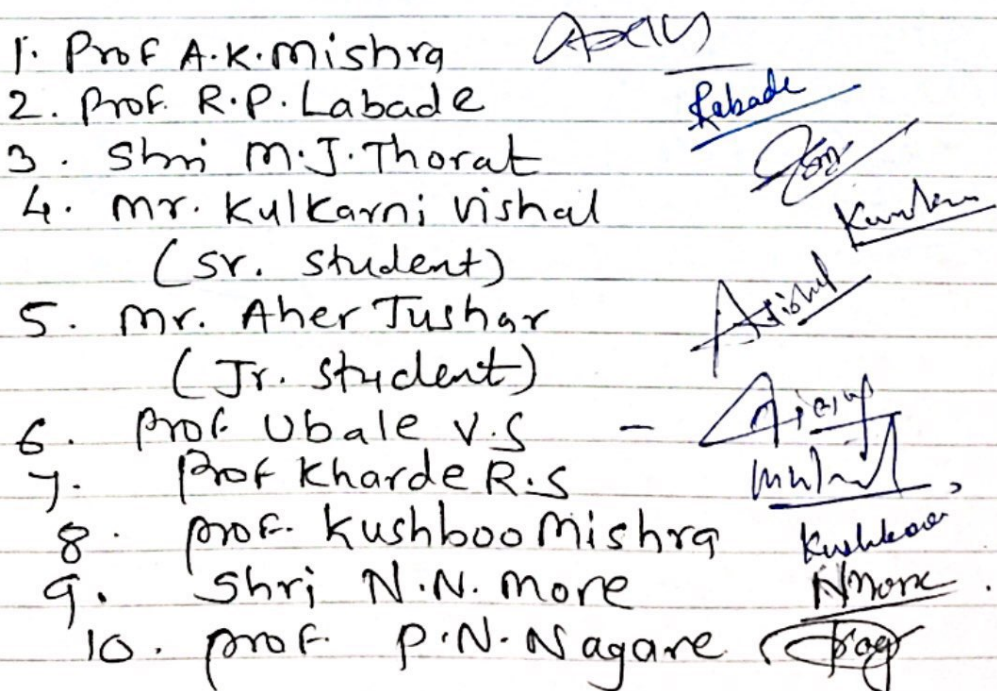 1. Prof A.K. Mishra
2. Prof. R.P. Labade Labade
3. Shri M.J. Thorat
4. Mr. Kulkarni Vishal
(Sr. student)
5. Mr. Aher Tushar
(Jr. student)
6. Prof Ubale V.S -
7. Prof Kharde R.S
8. Prof. Kushboo Mishra
9. Shri N.N. More NMore
10. Prof. P.N. Nagare